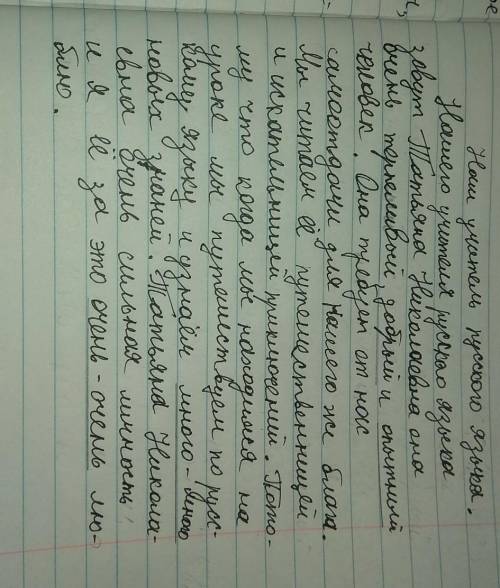 Наш учитель русского языка.
Нашего учителя русского языка
зовут Татьяна Николаевна она
очень терпеливый, добрый и опытный
человек. Она требует от нас
самоотдачи для нашего же блага.
Мы читаем её путешественницей
и искательницей приключений. Пото-
му что когда мы находимся на
уроке мы путешествуем по русс-
кому языку и узнаём много-много
новых знаней. Татьяна Никола-
евна очень сильная личность
и я её за это очень-очень лю-
блю.